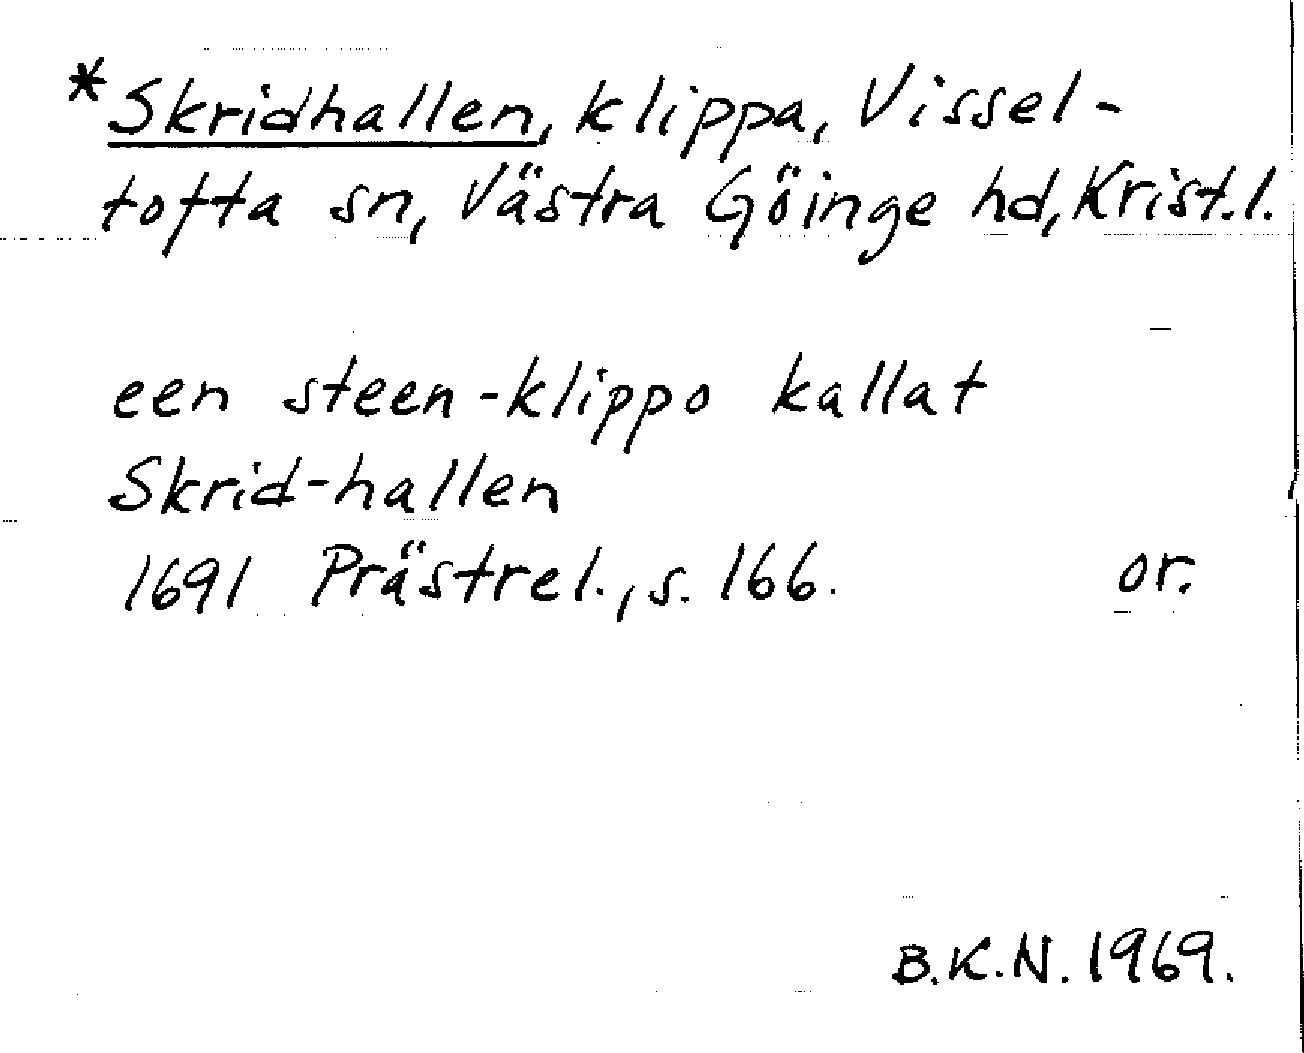 *Skridhallen, klippa, Vissel-
tofta sn, Västra Göinge hd, Krist.l.
een steen-klippo kallat
Skrid-hallen
1691 Prästrel., s. 166. or.
B.K.N. 1969.